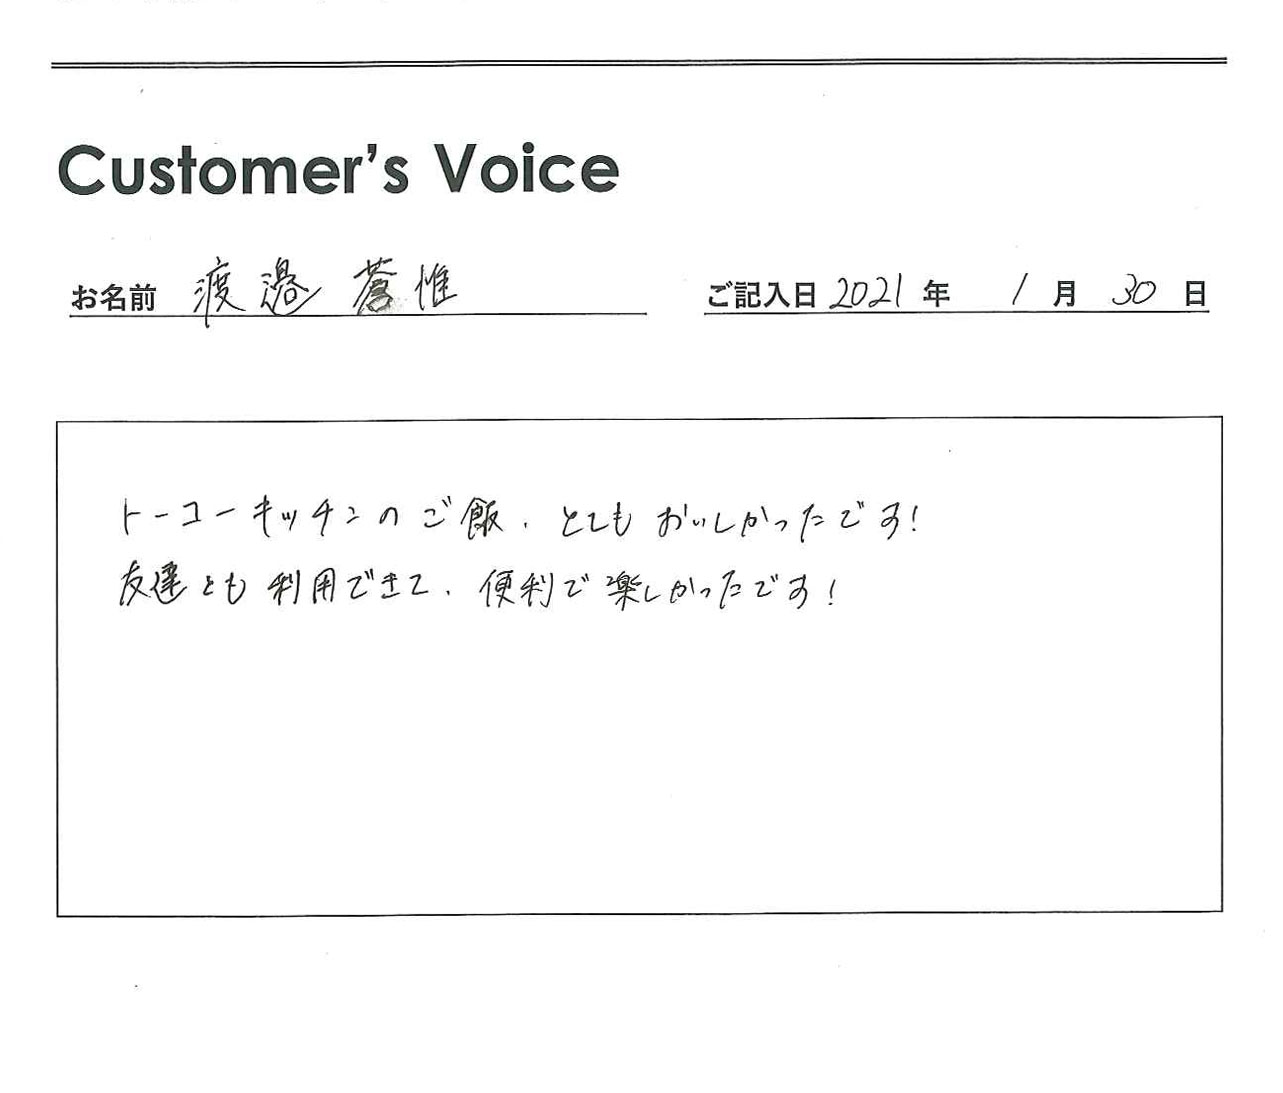 Customer's Voice
お名前 渡邉 蒼惟
ご記入日 2021 年 1 月 30 日
トーコーキッチンのご飯、とてもおいしかったです!
友達とも利用できて、便利で楽しかったです!